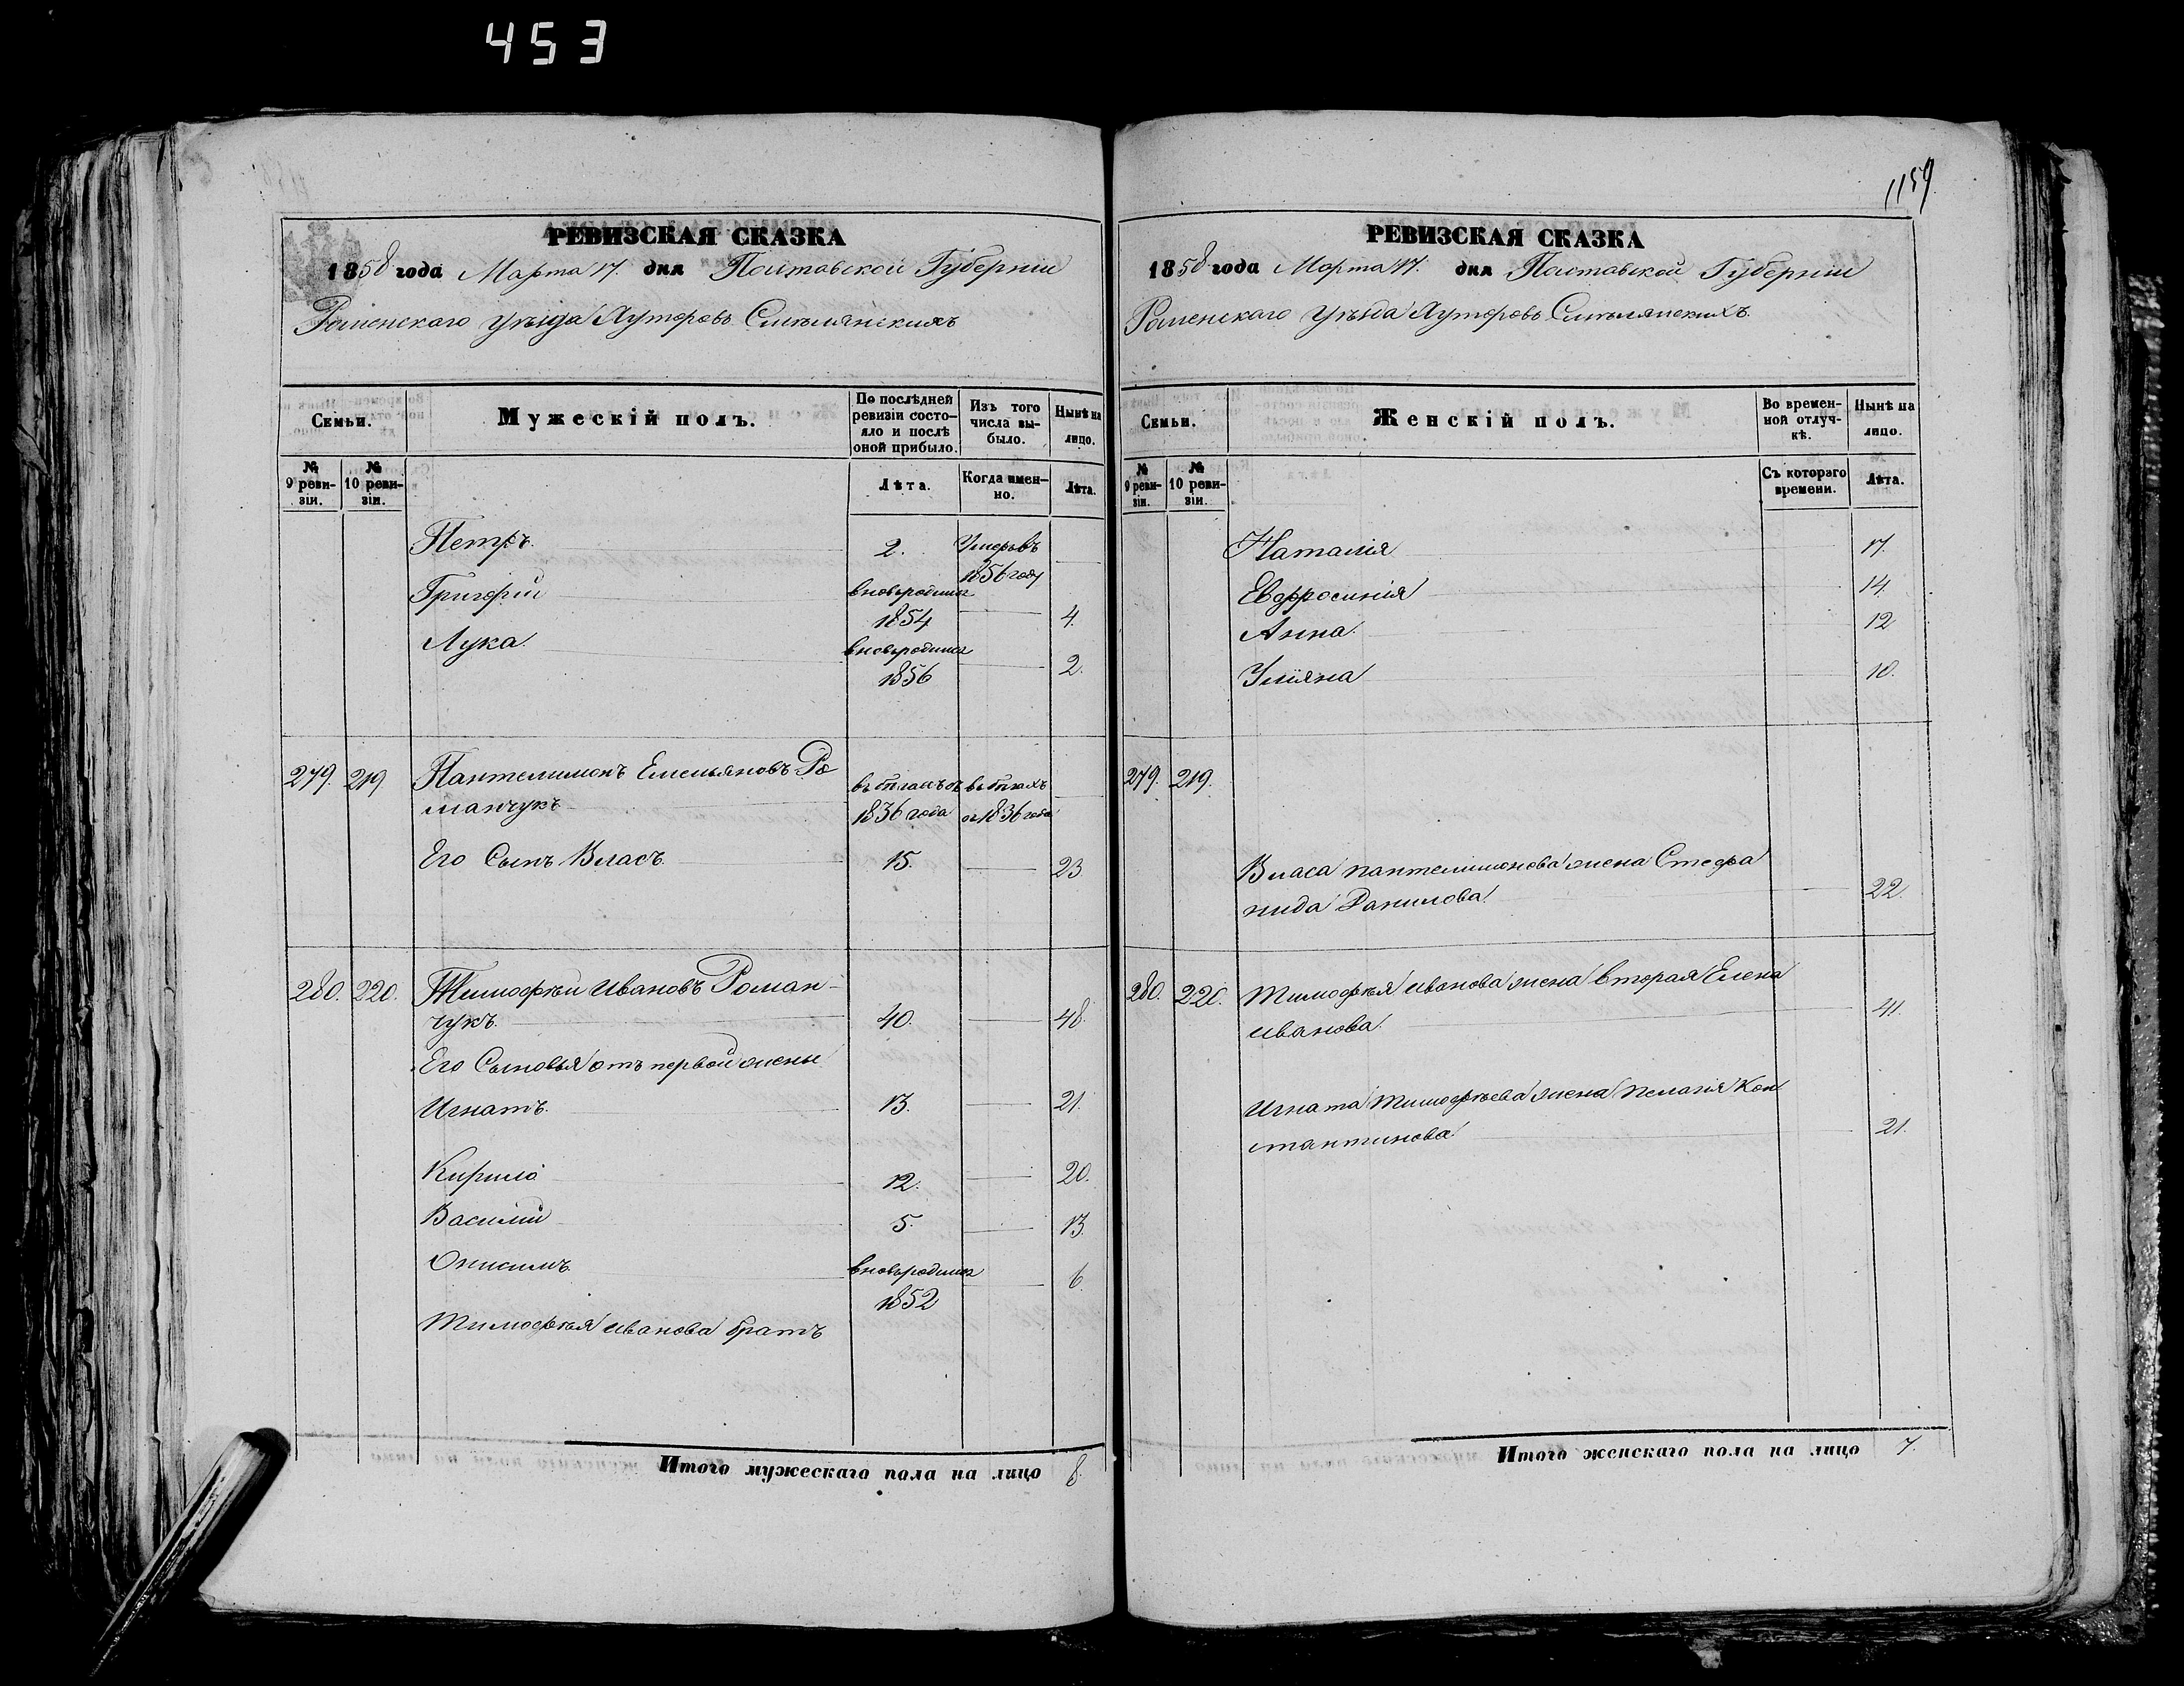 453
РЕВИЗСКАЯ СКАЗКА
1858 года Марта 17. дня Полтавской Губерніи
Роменскаго уѣзда Хуторовъ Смѣлянскихъ
Семьи.
Мужескій полъ.
По послѣдней ревизіи состо-
яло и послѣ оной прибыло.
Изъ того числа вы-
было.
Нынѣ на лицо.
№ 9 реви-
зіи.
№ 10 реви-
зіи.
Лѣта.
Когда имен-
но.
Лѣта.
Петръ. 2. Умеръ въ 1856 году
Григорій вновьродился 1854 4.
Лука. вновьродился 1856 2.
279. 219 Пантелимонъ Емельяновъ Ро
манчукъ въ бѣгахъ съ 1836 года въ бѣгахъ съ 1836 года
Его Сынъ Власъ 15. 23
280. 220. Тимофѣй Ивановъ Роман-
чукъ. 40. 48.
Его Сыновья отъ первой жены
Игнатъ. 13. 21.
Кирило 12. 20.
Василій 5. 13.
Онисимъ. вновьродился 1852 6.
Тимофѣя Иванова братъ
Итого мужескаго пола на лицо 8.
1159.
РЕВИЗСКАЯ СКАЗКА
1858 года Марта 17. дня Полтавской Губерніи
Роменскаго уѣзда Хуторовъ Смѣлянскихъ.
Семьи.
Женскій полъ.
Во времен-
ной отлуч-
кѣ.
Нынѣ на лицо.
№ 9 реви-
зіи.
№ 10 реви-
зіи.
Съ котораго времени.
Лѣта.
Наталія 17.
Евфросинія 14.
Анна. 12
Уліяна 10.
279. 219.
Власа пантелимонова жена Стефа
нида Данилова. 22.
280. 220. Тимофѣя Иванова жена вторая Елена
Иванова. 41.
Игната Тимофѣева жена Пелагія Кон
стантинова 21.
Итого женскаго пола на лицо 7.